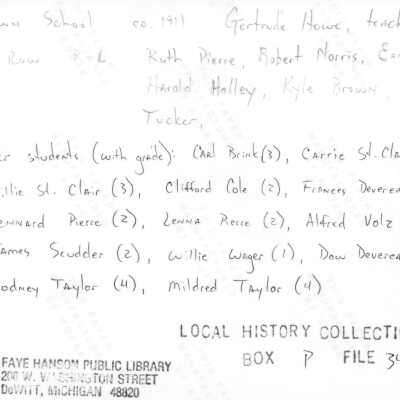 wn School ca. 1911 Gertrude Howe, teach
Row R-L Ruth Pierce, Robert Norris, Ear
Harold Holley, Kyle Brown,
Tucker,
er students (with grade): Carl Brink (3), Carrie St. Cla
illie St. Clair (3), Clifford Cole (2), Frances Deverea
ennard Pierce (2), Lenna Pierce (2), Alfred Volz
ames Scudder (2), Willie Wager (1), Dow Deverea
odney Taylor (4), Mildred Taylor (4)
LOCAL HISTORY COLLECTI
BOX P FILE 34
FAYE HANSON PUBLIC LIBRARY
200 W. WASHINGTON STREET
DeWITT, MICHIGAN 48820